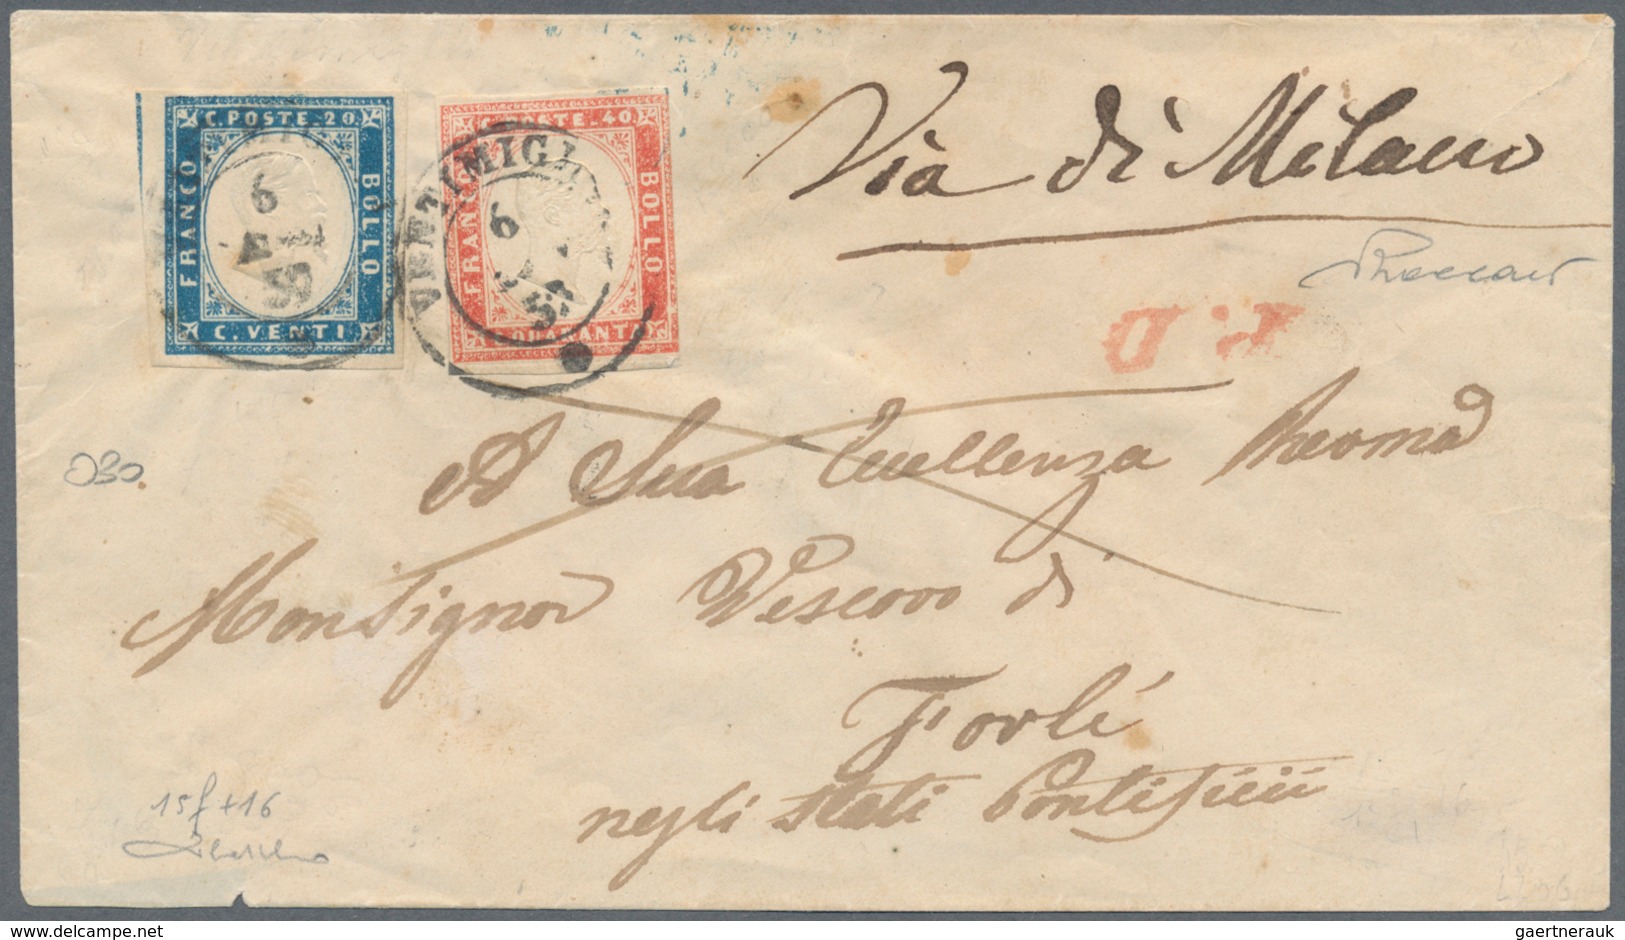 C. POSTE. 20.
FRANCO
BOLLO
C. VENTI
C. POSTE. 40.
FRANCO
BOLLO
C. QUARANTA
VENTIMIGLIA
6
59
Via di Milano
P. D.
A Sua Eccellenza Revma
Monsignor Vescovo di
Forlí
negli Stati Pontificii
030.
15f+16
delcampe.net
gaertnerauk